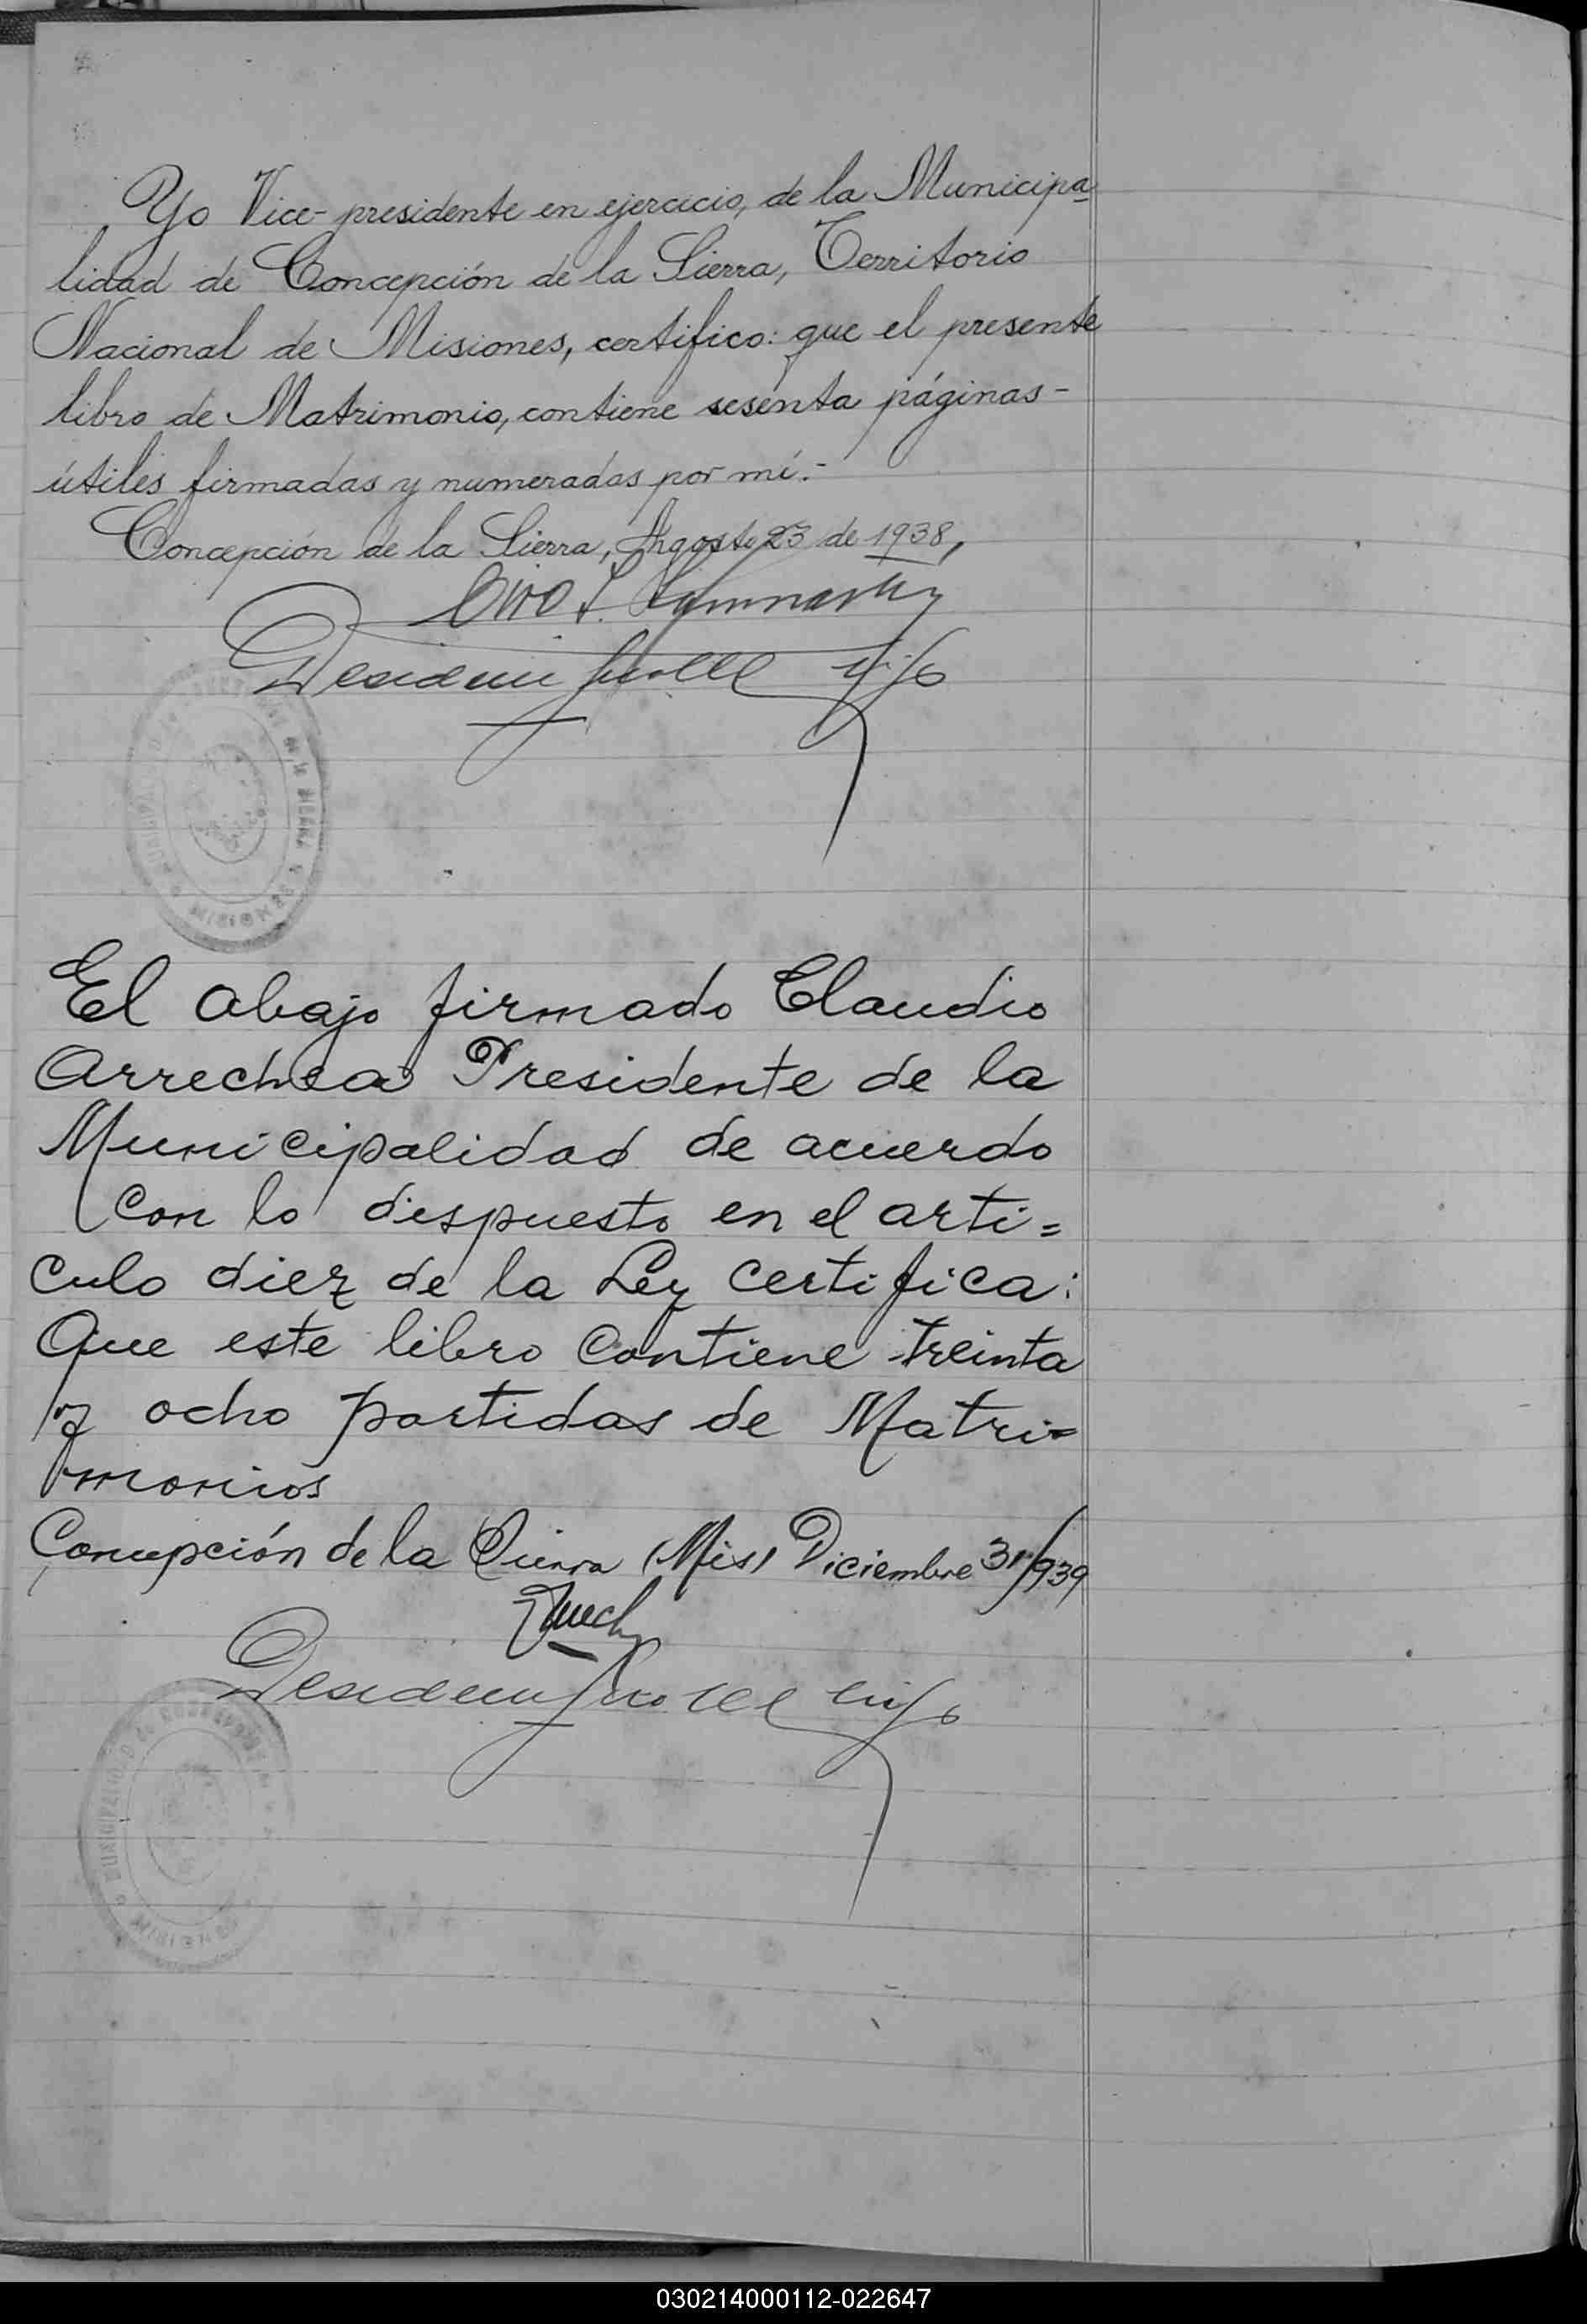 Yo Vice-presidente en ejercicio, de la Municipa
lidad de Concepción de la Sierra, Territorio
Nacional de Misiones, certifico: que el presente
libro de Matrimonio, contiene sesenta páginas-
útiles firmadas y numeradas por mí.-
Concepción de la Sierra, Agosto 23 de 1938,
hijo
El abajo firmado Claudio
Arrechea Presidente de la
Municipalidad de acuerdo
con lo dispuesto en el arti=
culo diez de la Ley certifica:
Que este libro contiene treinta
y ocho partidas de Matri=
monios
Concepción de la Sierra (Mis) Diciembre 31/939
hijo
MUNICIPALIDAD de
MISIONES
030214000112-022647